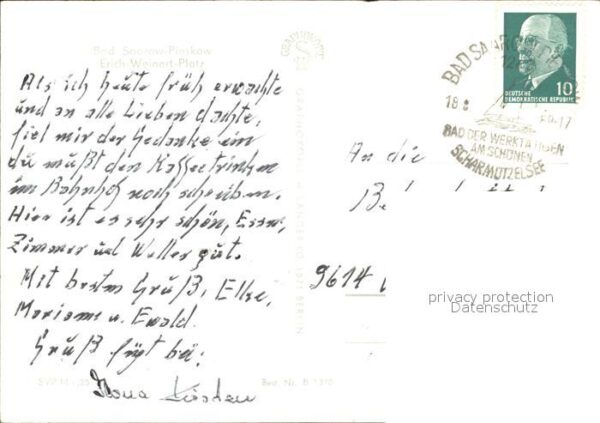 Bad Saarow-Pieskow
Erich-Weinert-Platz
Als ich heute früh erwachte
und an alle Lieben dachte,
fiel mir der Gedanke ein
du mußt den Kaffeetrinken
im Bahnhof noch schreiben.
Hier ist es sehr schön, Essen,
Zimmer und Wetter gut.
Mit besten Gruß, Elke,
Mariann u. Ewald.
Gruß fügt bei:
Ilona
An die
9614
BAD SAAROW
18
-17
BAD DER WERKTÄTIGEN
AM SCHÖNEN
SCHARMÜTZELSEE
DEUTSCHE
DEMOKRATISCHE REPUBLIK
10
privacy protection
Datenschutz
Best. Nr. B 1370